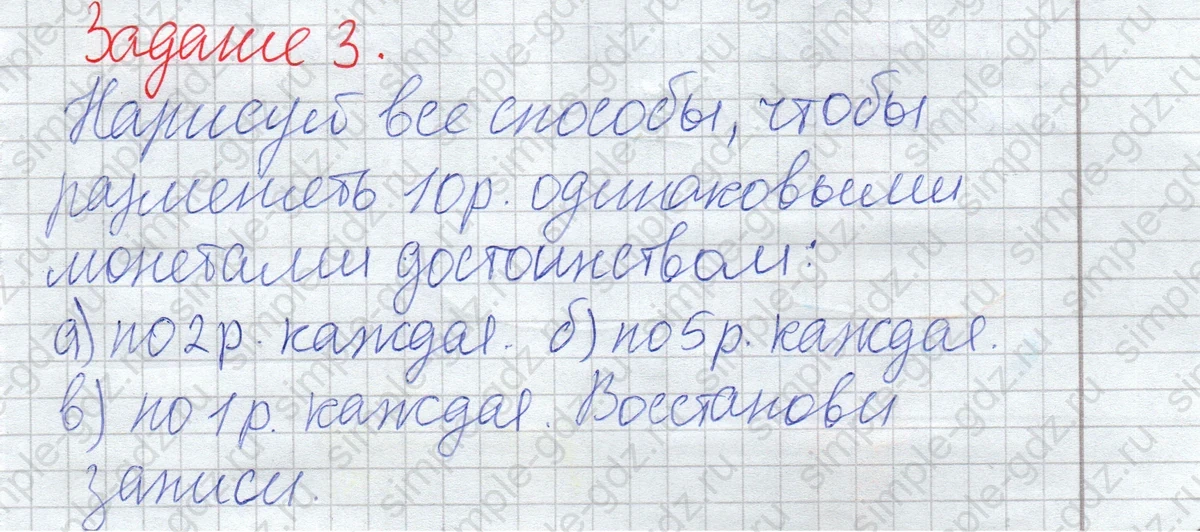 Задание 3.
Нарисуй все способы, чтобы
разменять 10р. одинаковыми
монетами достоинством:
а) по 2р. каждая. б) по 5р. каждая.
в) по 1р. каждая. Восстанови
записи.
simple-gdz.ru